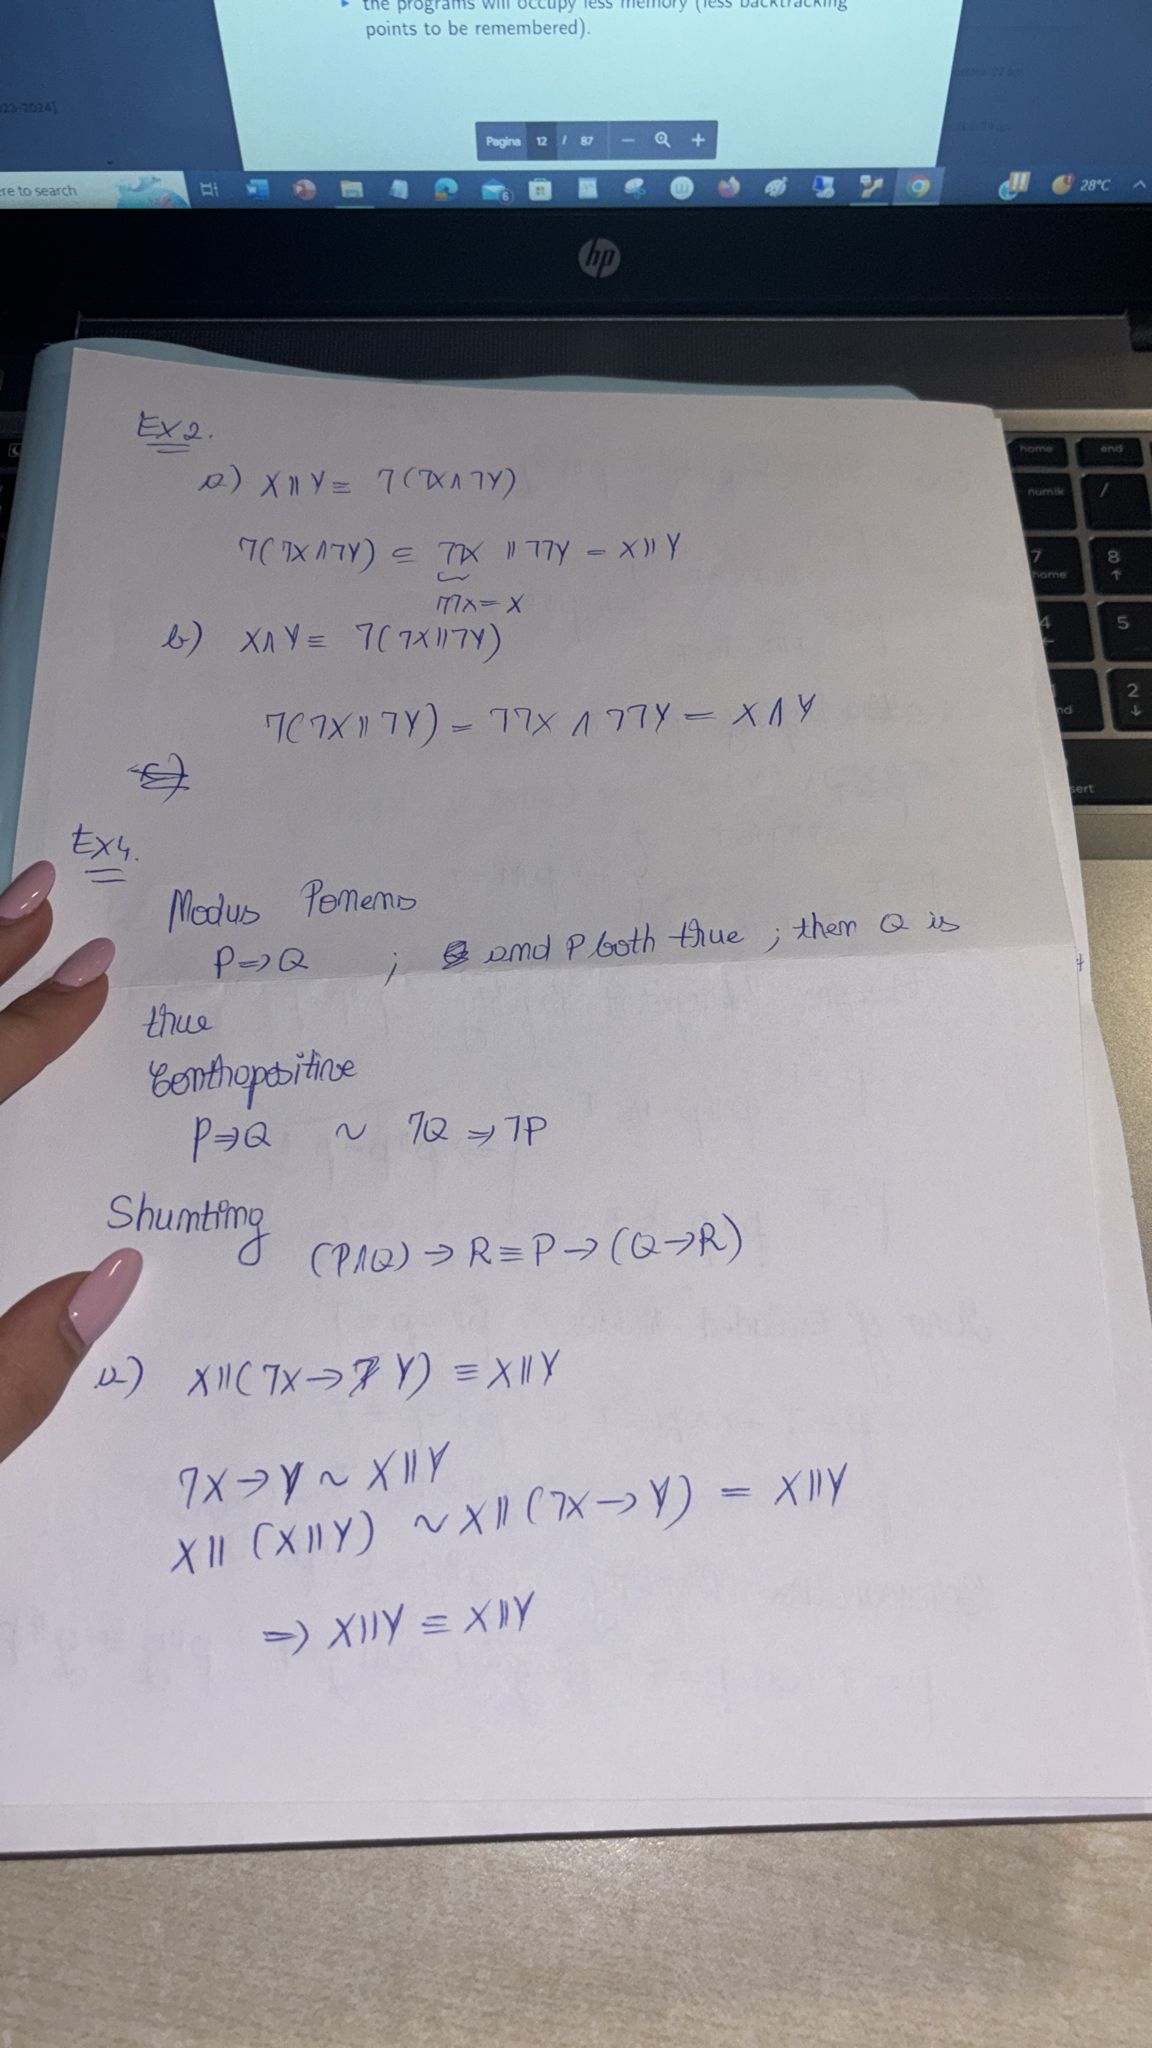 the programs will occupy less memory (less backtracking
points to be remembered).
23-2024]
Pagina 12 / 87 − +
re to search
6
28°C
hp
home end
numlk /
7 home
8 ↑
4 ←
5
2 ↓
nd
sert
Ex2.
a) X || Y ≡ ⌐(⌐X ∧ ⌐Y)
⌐(⌐X ∧ ⌐Y) = ⌐⌐X || ⌐⌐Y = X || Y
⌐⌐X = X
b) X ∧ Y ≡ ⌐(⌐X || ⌐Y)
⌐(⌐X || ⌐Y) = ⌐⌐X ∧ ⌐⌐Y = X ∧ Y
Ex4.
Modus Ponens
P ⇒ Q ; and P both true ; then Q is
true
Contrapositive
P ⇒ Q ~ ⌐Q ⇒ ⌐P
Shunting
(P ∧ Q) → R ≡ P → (Q → R)
a) X || (⌐X → Y) ≡ X || Y
⌐X → Y ~ X || Y
X || (X || Y) ~ X || (⌐X → Y) = X || Y
⇒ X || Y ≡ X || Y